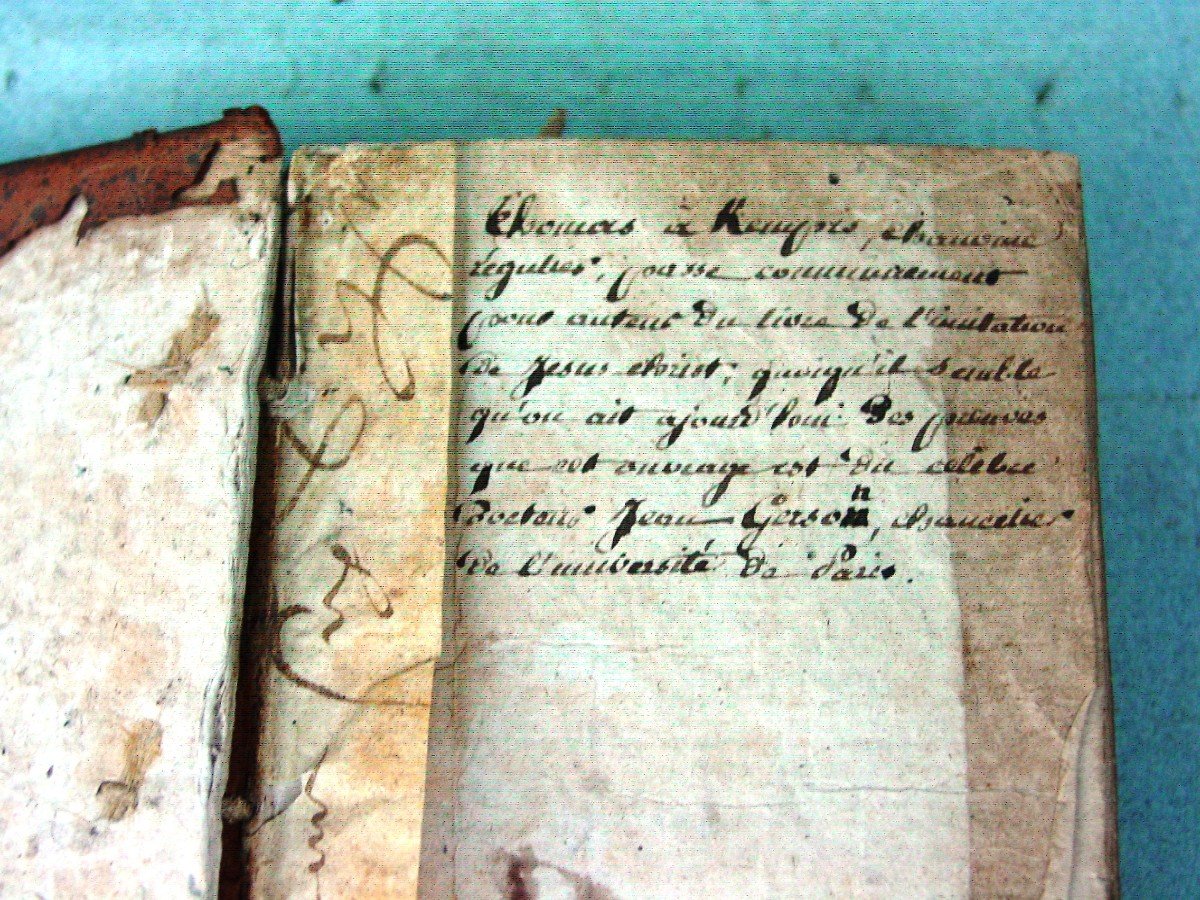 Thomas à Kempis, chanoine
régulier, passe communement
pour auteur du livre De l'imitation
De Jesus christ, quoiqu'il semble
qu'on ait ajourd'hui Des preuves
que cet ouvrage est du celèbre
Docteur Jean Gerson, chancelier
De l'université De Paris.